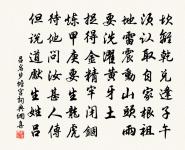 坎離乾兌逢子午
須認取自家根祖
地雷震動山頭雨
要洗濯黃芽出土
捉得金精牢閉固
煉甲庚要生龍虎
待他問汝甚人傳
但說道先生姓呂
呂岩步蟾宮詞